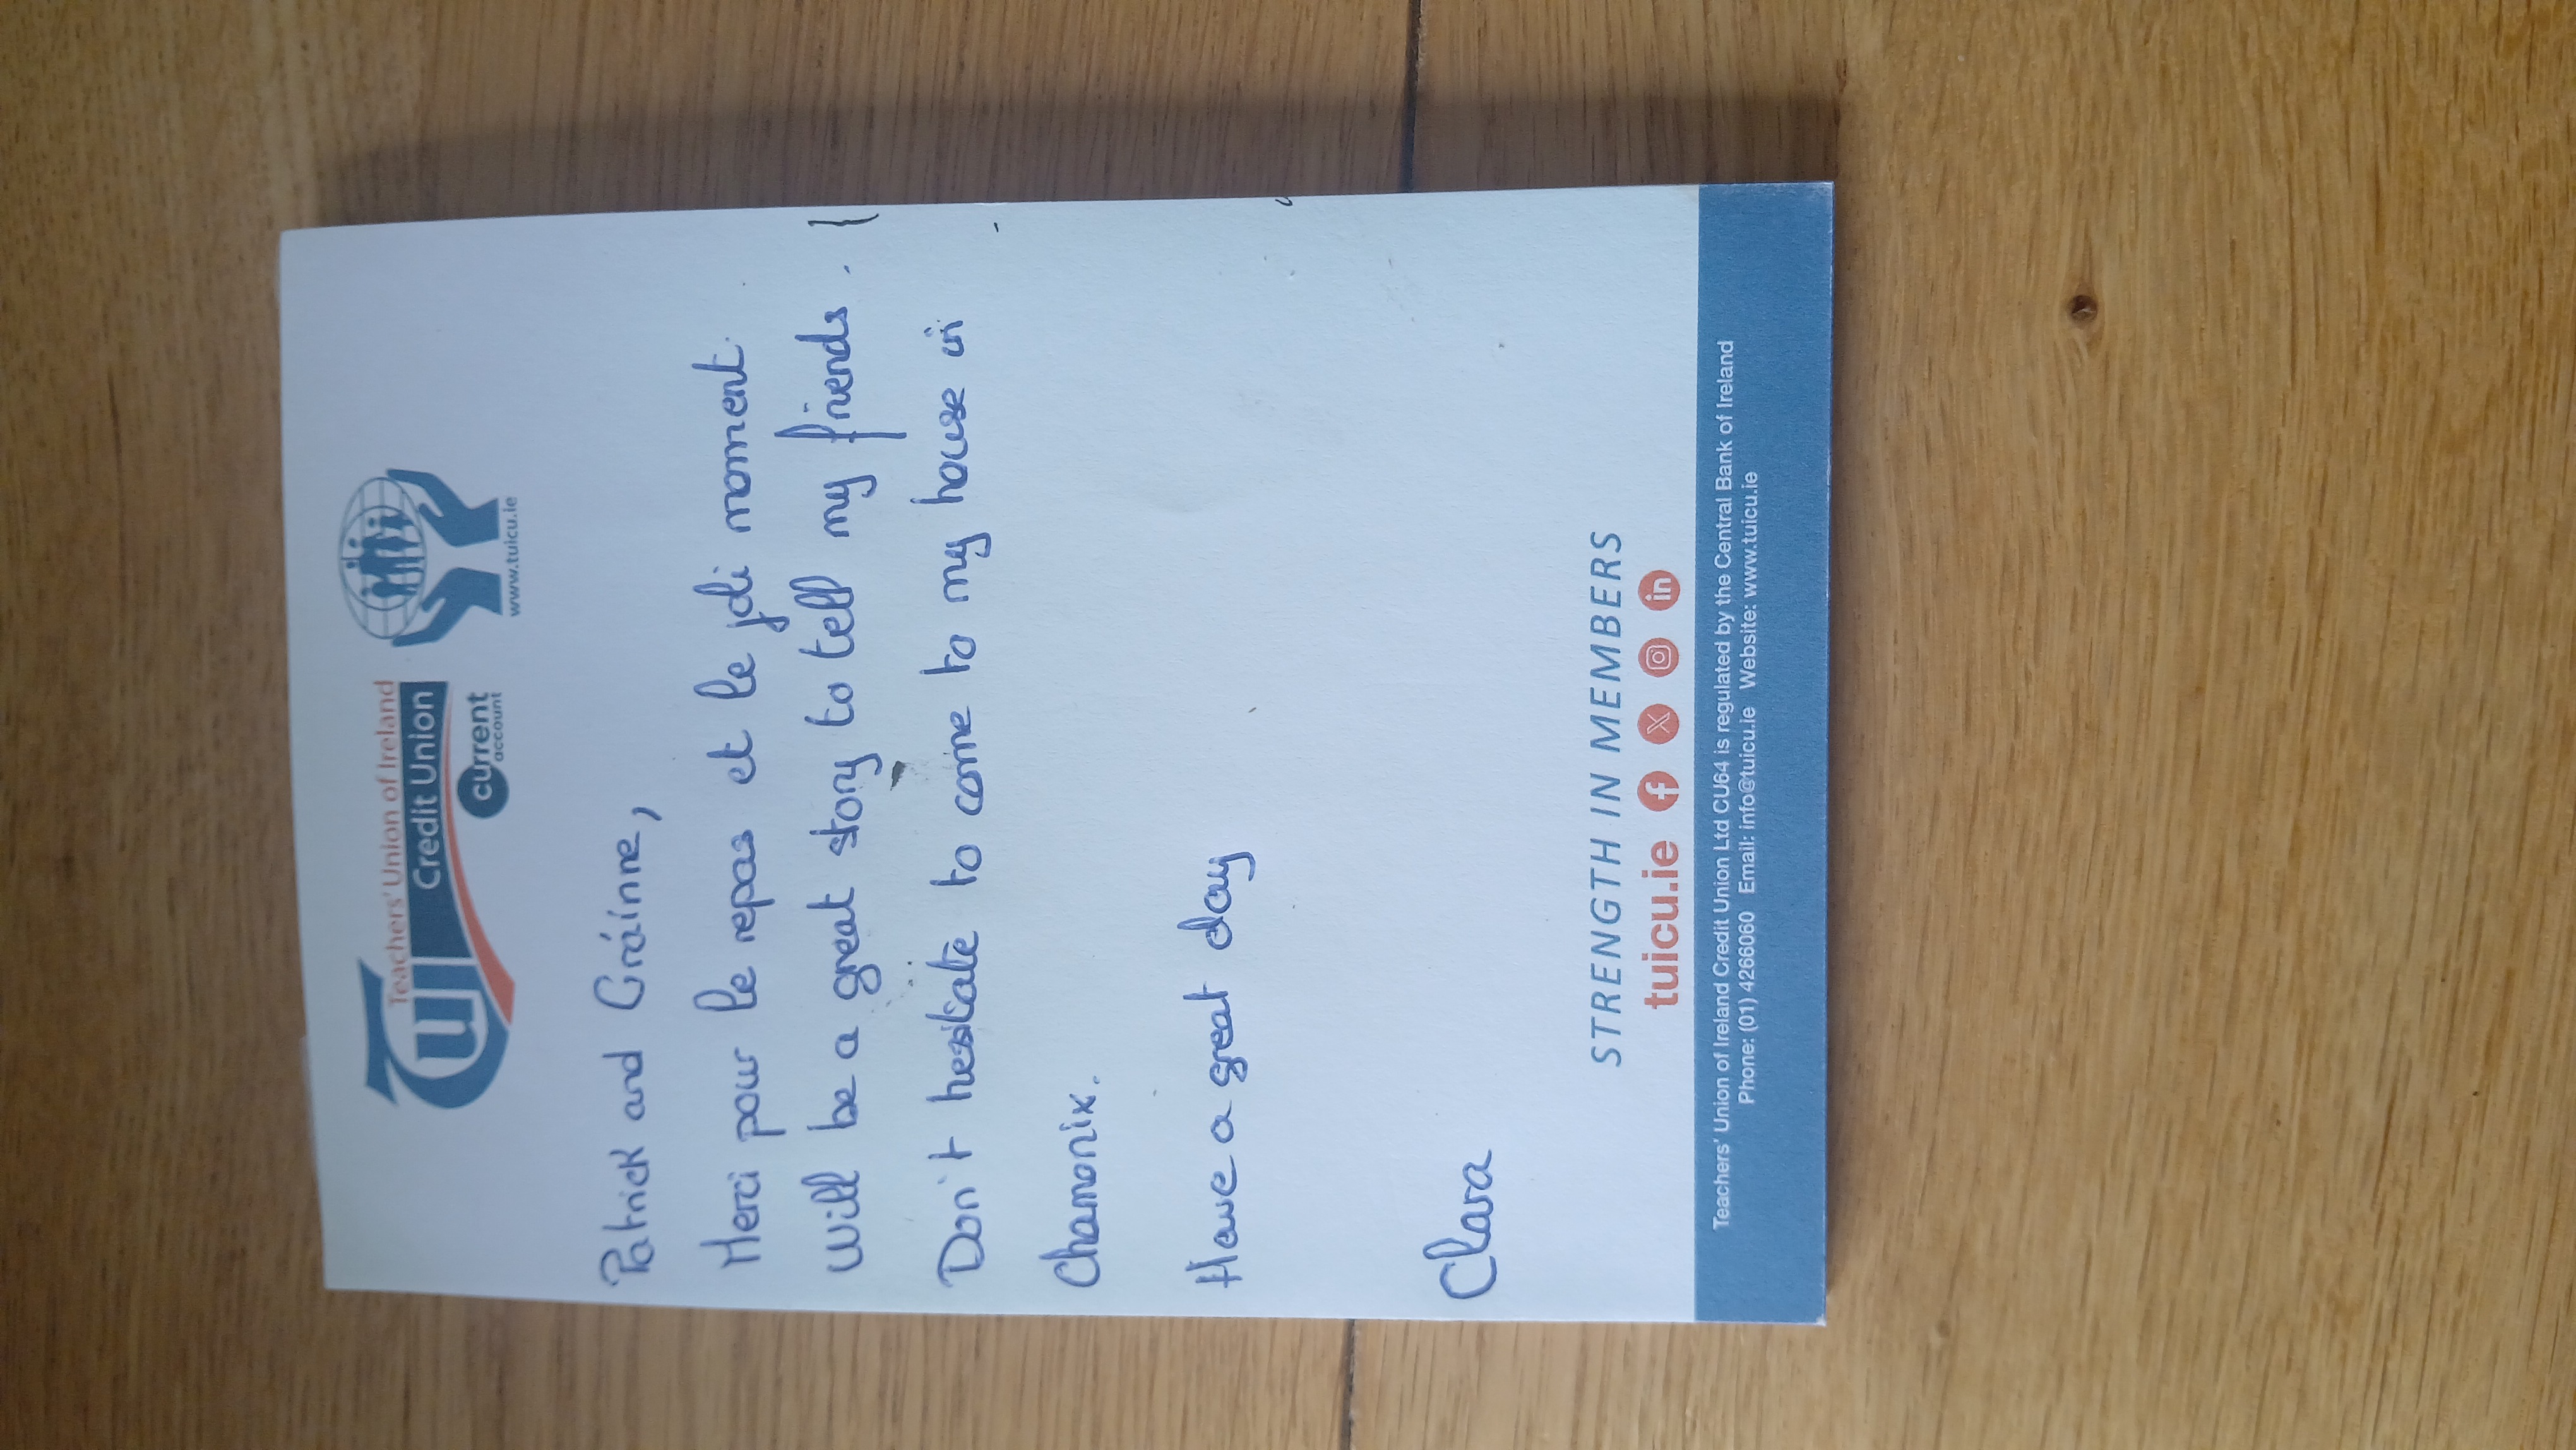 Teachers' Union of Ireland
TUI Credit Union
current
account
www.tuicu.ie
Patrick and Gráinne,
Merci pour le repas et le joli moment.
Will be a great story to tell my friends.
Don't hesitate to come to my house in
Chamonix.
Have a great day
Clara
STRENGTH IN MEMBERS
tuicu.ie
Teachers' Union of Ireland Credit Union Ltd CU64 is regulated by the Central Bank of Ireland
Phone: (01) 4266060 Email: info@tuicu.ie Website: www.tuicu.ie